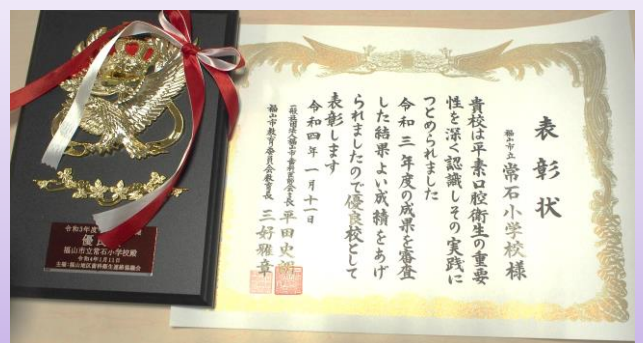 表彰状
福山市立 常石小学校様
貴校は平素口腔衛生の重要
性を深く認識しその実践に
つとめられました
令和三年度の成果を審査
した結果よい成績をあげ
られましたので優良校として
表彰します
令和四年一月十一日
一般社団法人福山市歯科医師会会長 平田史
福山市教育委員会教育長 三好雅章
令和3年度
優良
福山市立常石小学校殿
令和4年1月11日
主催・福山地区歯科衛生連絡協議会